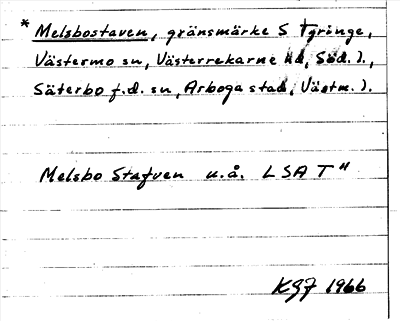 * Melsbostaven, gränsmärke S Tyringe,
Västermo sn, Västerrekarne hd, Söd.).,
Säterbo f.d. sn, Arboga stad, Västm.).
Melsbo Stafven u.å. LSA T"
KGF 1966